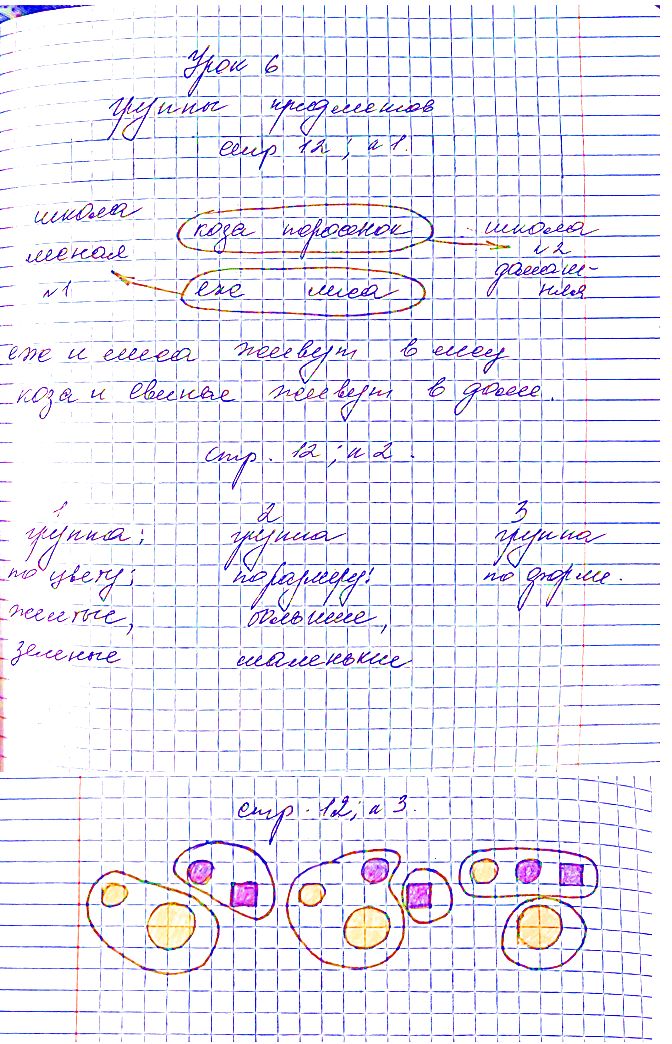 Урок 6
Группы предметов
стр 12; п 1.
школа
лесная
№1
коза поросенок
еж лиса
школа
№2
домаш-
няя
еж и лиса живут в лесу
коза и свинья живут в доме.
стр. 12; п 2.
1
группа:
по цвету:
желтые,
зеленые
2
группа
по размеру:
большие,
маленькие
3
группа
по форме.
стр. 12; п 3.